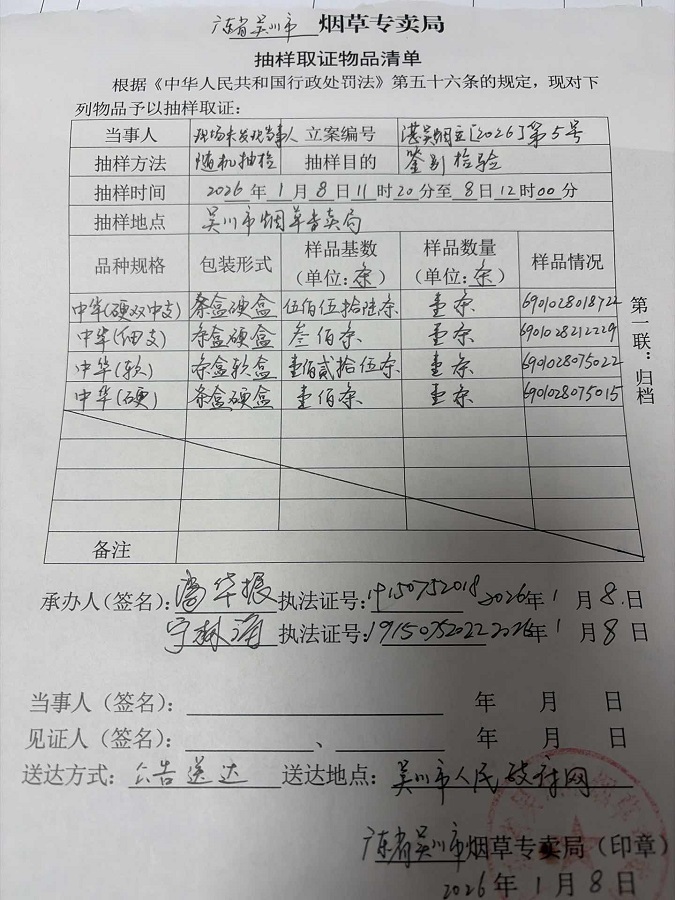 广东省吴川市 烟草专卖局
抽样取证物品清单
根据《中华人民共和国行政处罚法》第五十六条的规定，现对下
列物品予以抽样取证：
当事人 现场未发现当事人 立案编号 湛吴烟立[2026]第5号
抽样方法 随机抽检 抽样目的 鉴别检验
抽样时间 2026年1月8日11时20分至8日12时00分
抽样地点 吴川市烟草专卖局
品种规格 包装形式 样品基数（单位：条） 样品数量（单位：条） 样品情况
中华(硬双中支) 条盒硬盒 伍佰伍拾陆条 壹条 6901028018722
中华(细支) 条盒硬盒 叁佰条 壹条 6901028212229
中华(软) 条盒软盒 壹佰贰拾伍条 壹条 6901028075022
中华(硬) 条盒硬盒 壹佰条 壹条 6901028075015
备注
第一联：归档
承办人（签名）： 华振 执法证号：19150752018 2026年1月8日
宁林海 执法证号：19150752022 2026年1月8日
当事人（签名）： 年 月 日
见证人（签名）： 、 年 月 日
送达方式：公告送达 送达地点：吴川市人民政府网
广东省吴川市烟草专卖局（印章）
2026年1月8日